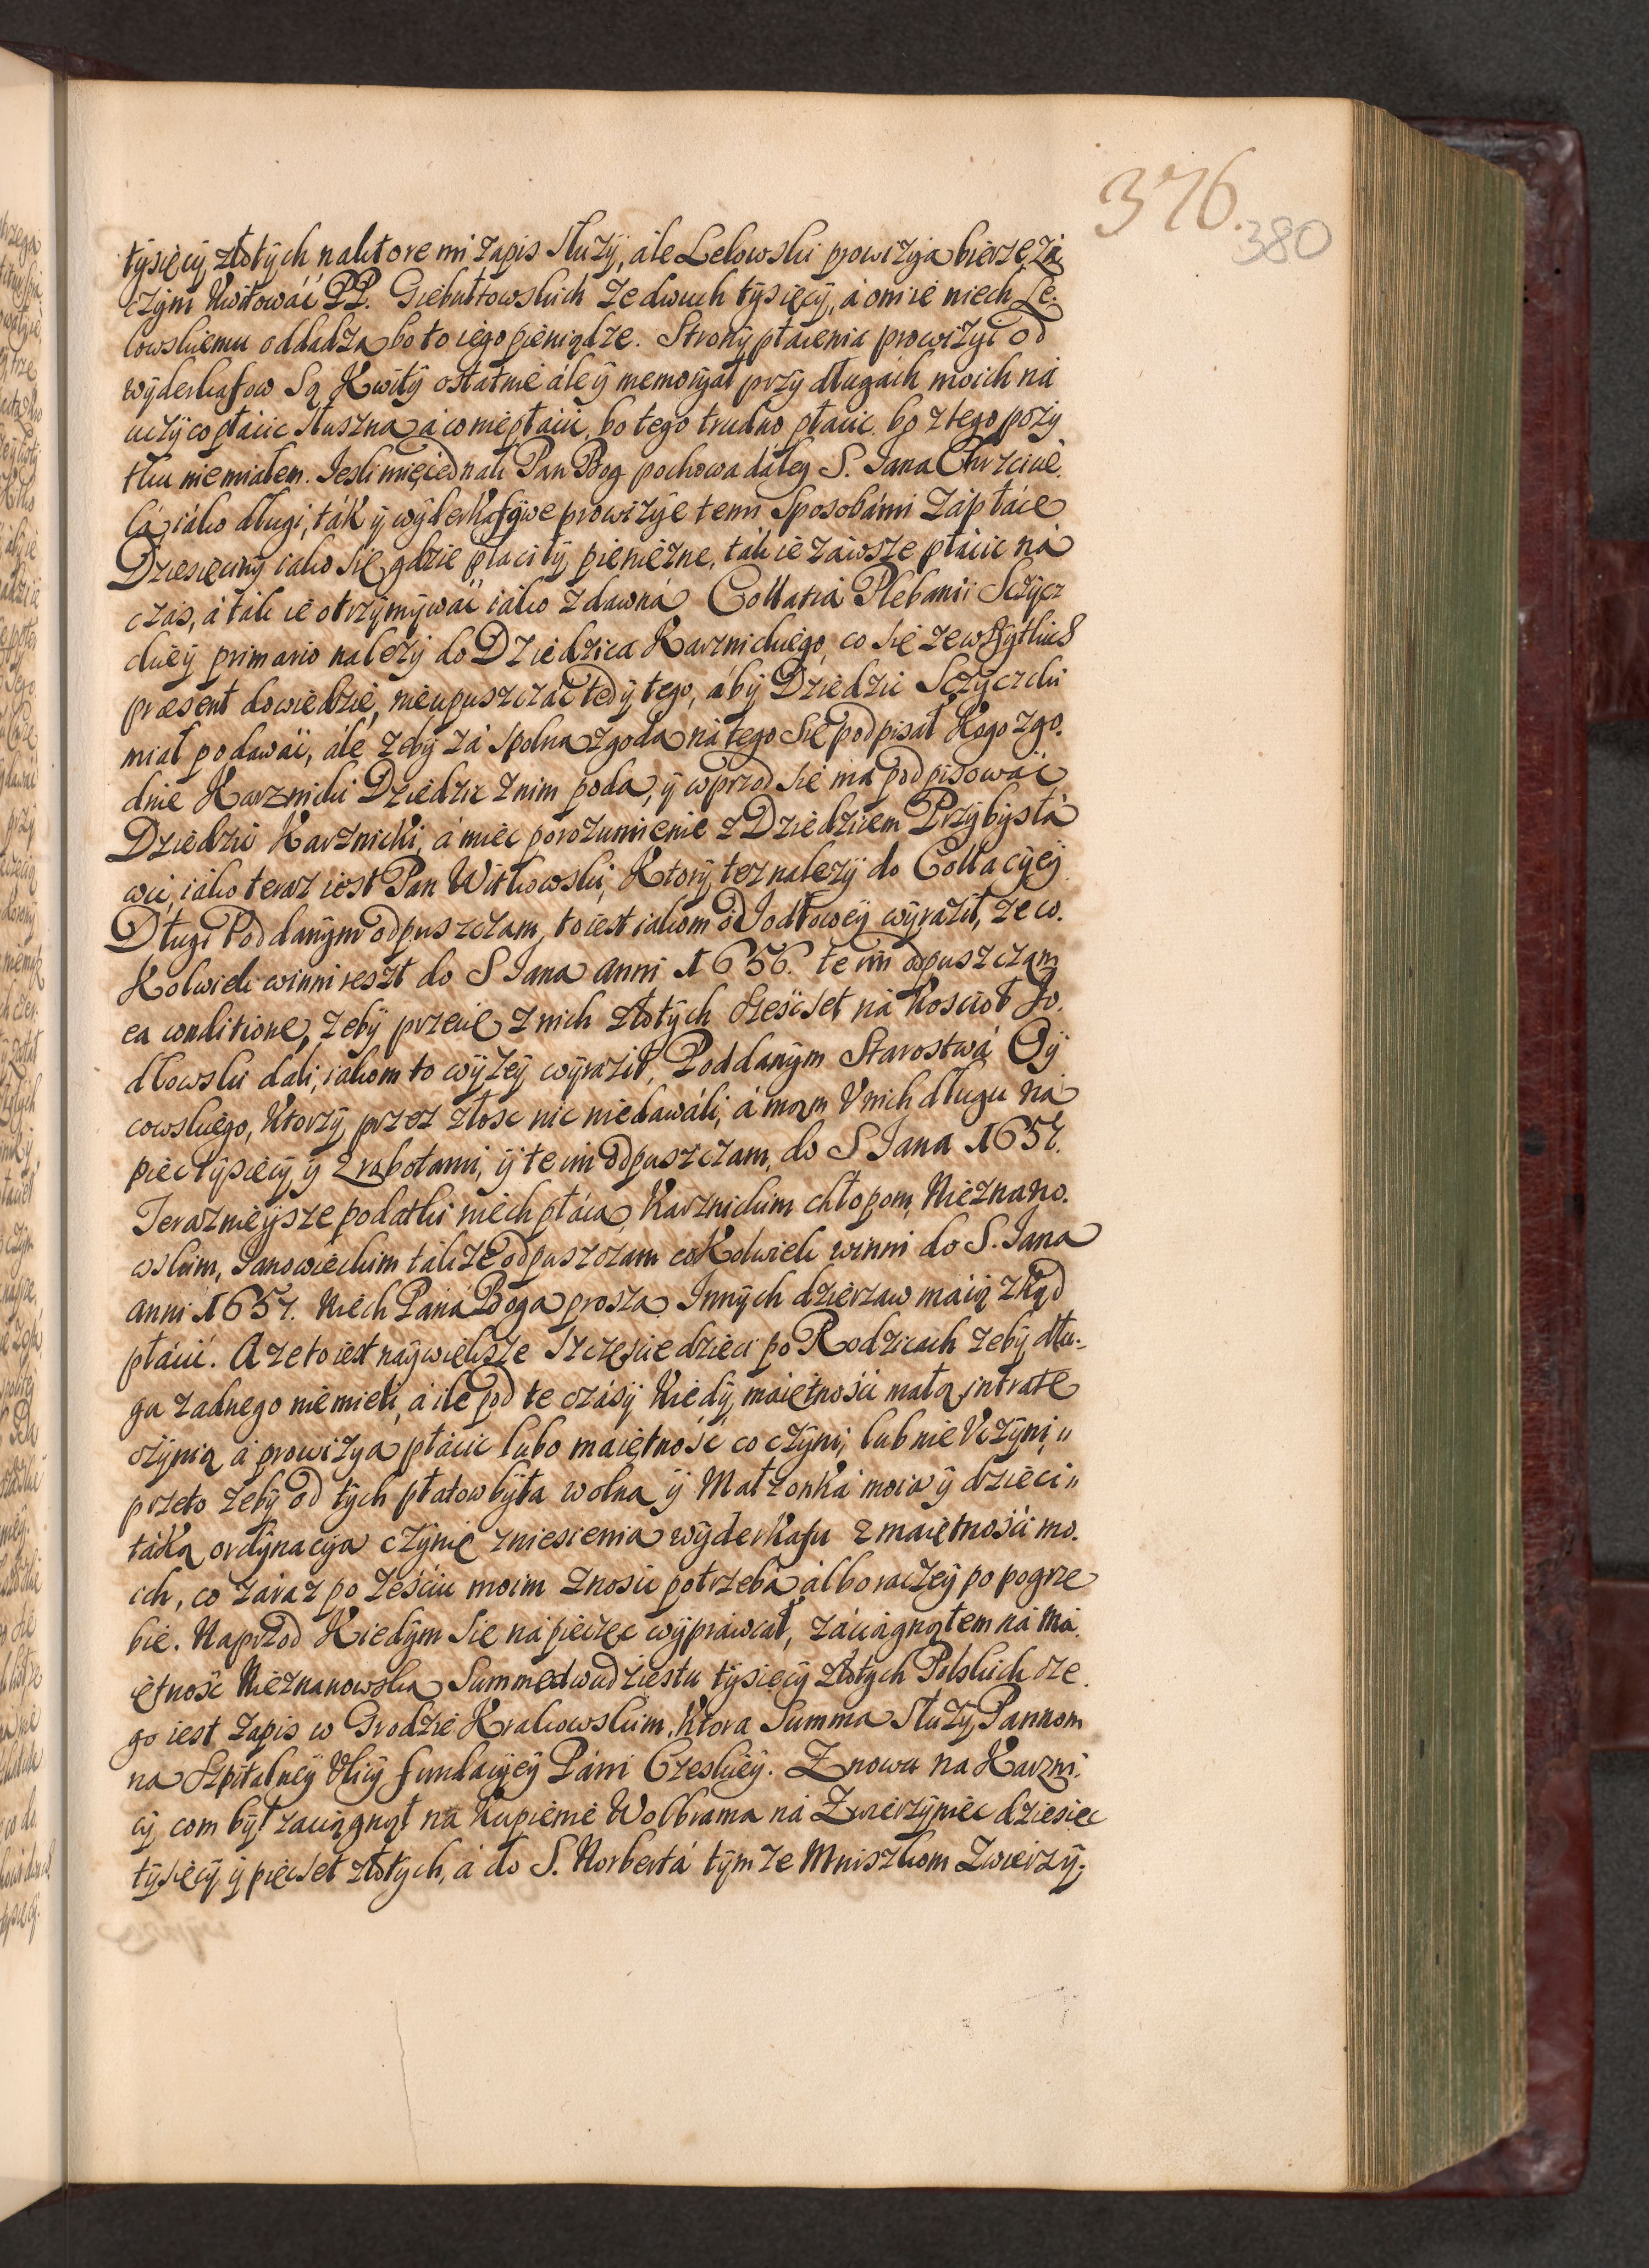 376.
380
tysięcy złotych naktore mi zapis służy, ále Lelowski prowizyą bierze zá
czym kwitowáć PP. Giebułtowskich ze dwuch tysięcy, á oni ie niech Le-
lowskiemu oddadzą bo to iego pieniądze. Strony płacenia prowizyi od
wyderkafow Są Kwity ostatnie ále y memoryał przy długách moich ná
uczy co płácic słuszna á co nie płácic, bo tego trudno płacic bo z tego poży
tku nie miałem. Iesli mię iednak Pan Bog pochowa dáley S. Iana Chrzcicie
lá, iáko długi, ták y wyderkafowe prowizye temi sposobámi zápłáce
Dziesięciny iako się gdzie płacíły pieniezne, ták ie záwsze płácic ná
czás, á ták ie otrzymywáć iáko z dawná Collatia Plebanii Sczycz
ckiey primario należy do Dziedzica Karznickiego, co się ze wszytkich
præsent dowiedzie, nieupuszczáć tedy tego, áby Dziedzic Sczyczcki
miał podawáć, ále żeby zá spolną zgodą ná tego się podpisał Kogo zgo-
dnie Karznicki Dziedzic z nim poda, y wprzod się ma podpisowáć
Dziedzic Karznicki, á mieć porozumienie z Dziedzicem Przybysłá
wic, iáko teraz iest Pan Witkowski, Ktory tez nalezy do Collacyey.
Długi Poddanym odpuszczam, to iest iakom o Iodłowey wyraził, ze co-
Kolwiek winni reszt do S Iana anni 1656. te im odpuszczam
ea conditione, zeby przecie z nich złotych sześćset ná Kosciół Io-
dłowski dáli, iákom to wyzey wyraził, Poddanym Starostwá Oy
cowskiego, Ktorzy przez złosc nic niedawáli, á mam U nich długu ná
pięc tysięcy y z robotami, y te im odpuszczam, do S Iana 1657.
Terazniejsze podatki niech płácą, Karznickim chłopom, Nieznano-
wskim, Ianowieckim tákze odpuszczam coKolwiek winni do S. Iana
anni 1657. Niech Páná Boga proszą Innych dzierzaw máią zkąd
płácić. A ze to iest naywieksze szczęscie dzieci po Rodzicach zeby dłu-
gu zadnego niemieli, á ile pod te czásy Kiedy máiętnosci małą intratę
czynią á prowizya płácic lubo maiętność co czyni, lub nie Vczyni,
przeto zeby od tych płatow była wolna y Małzonká moiá y dzieci
táką ordynacyą czynię zniesienia wyderkafu z maiętnosci mo-
ich, co záraz po ześciu moim znosic potrzeba álbo raczey po pogrze
bie. Naprzod Kiedym się ná pieczec wypráwiał, záciągnąłem ná má-
iętność Nieznanowską Summę dwudziestu tysięcy złotych Polskich cze-
go iest zapis w Grodzie Krakowskim, Ktora Summa służy Pannom
na Szpitalney Ulicy fundacyey Páni Czeskiey. Znowu na Karzni-
cy com był zaciągnął ná Kupienie Wolbrama ná Zwierzyniec dziesiec
tysięcy y piećset złotych, á do S. Norbertá tym ze Mniszkom Zwierzy-